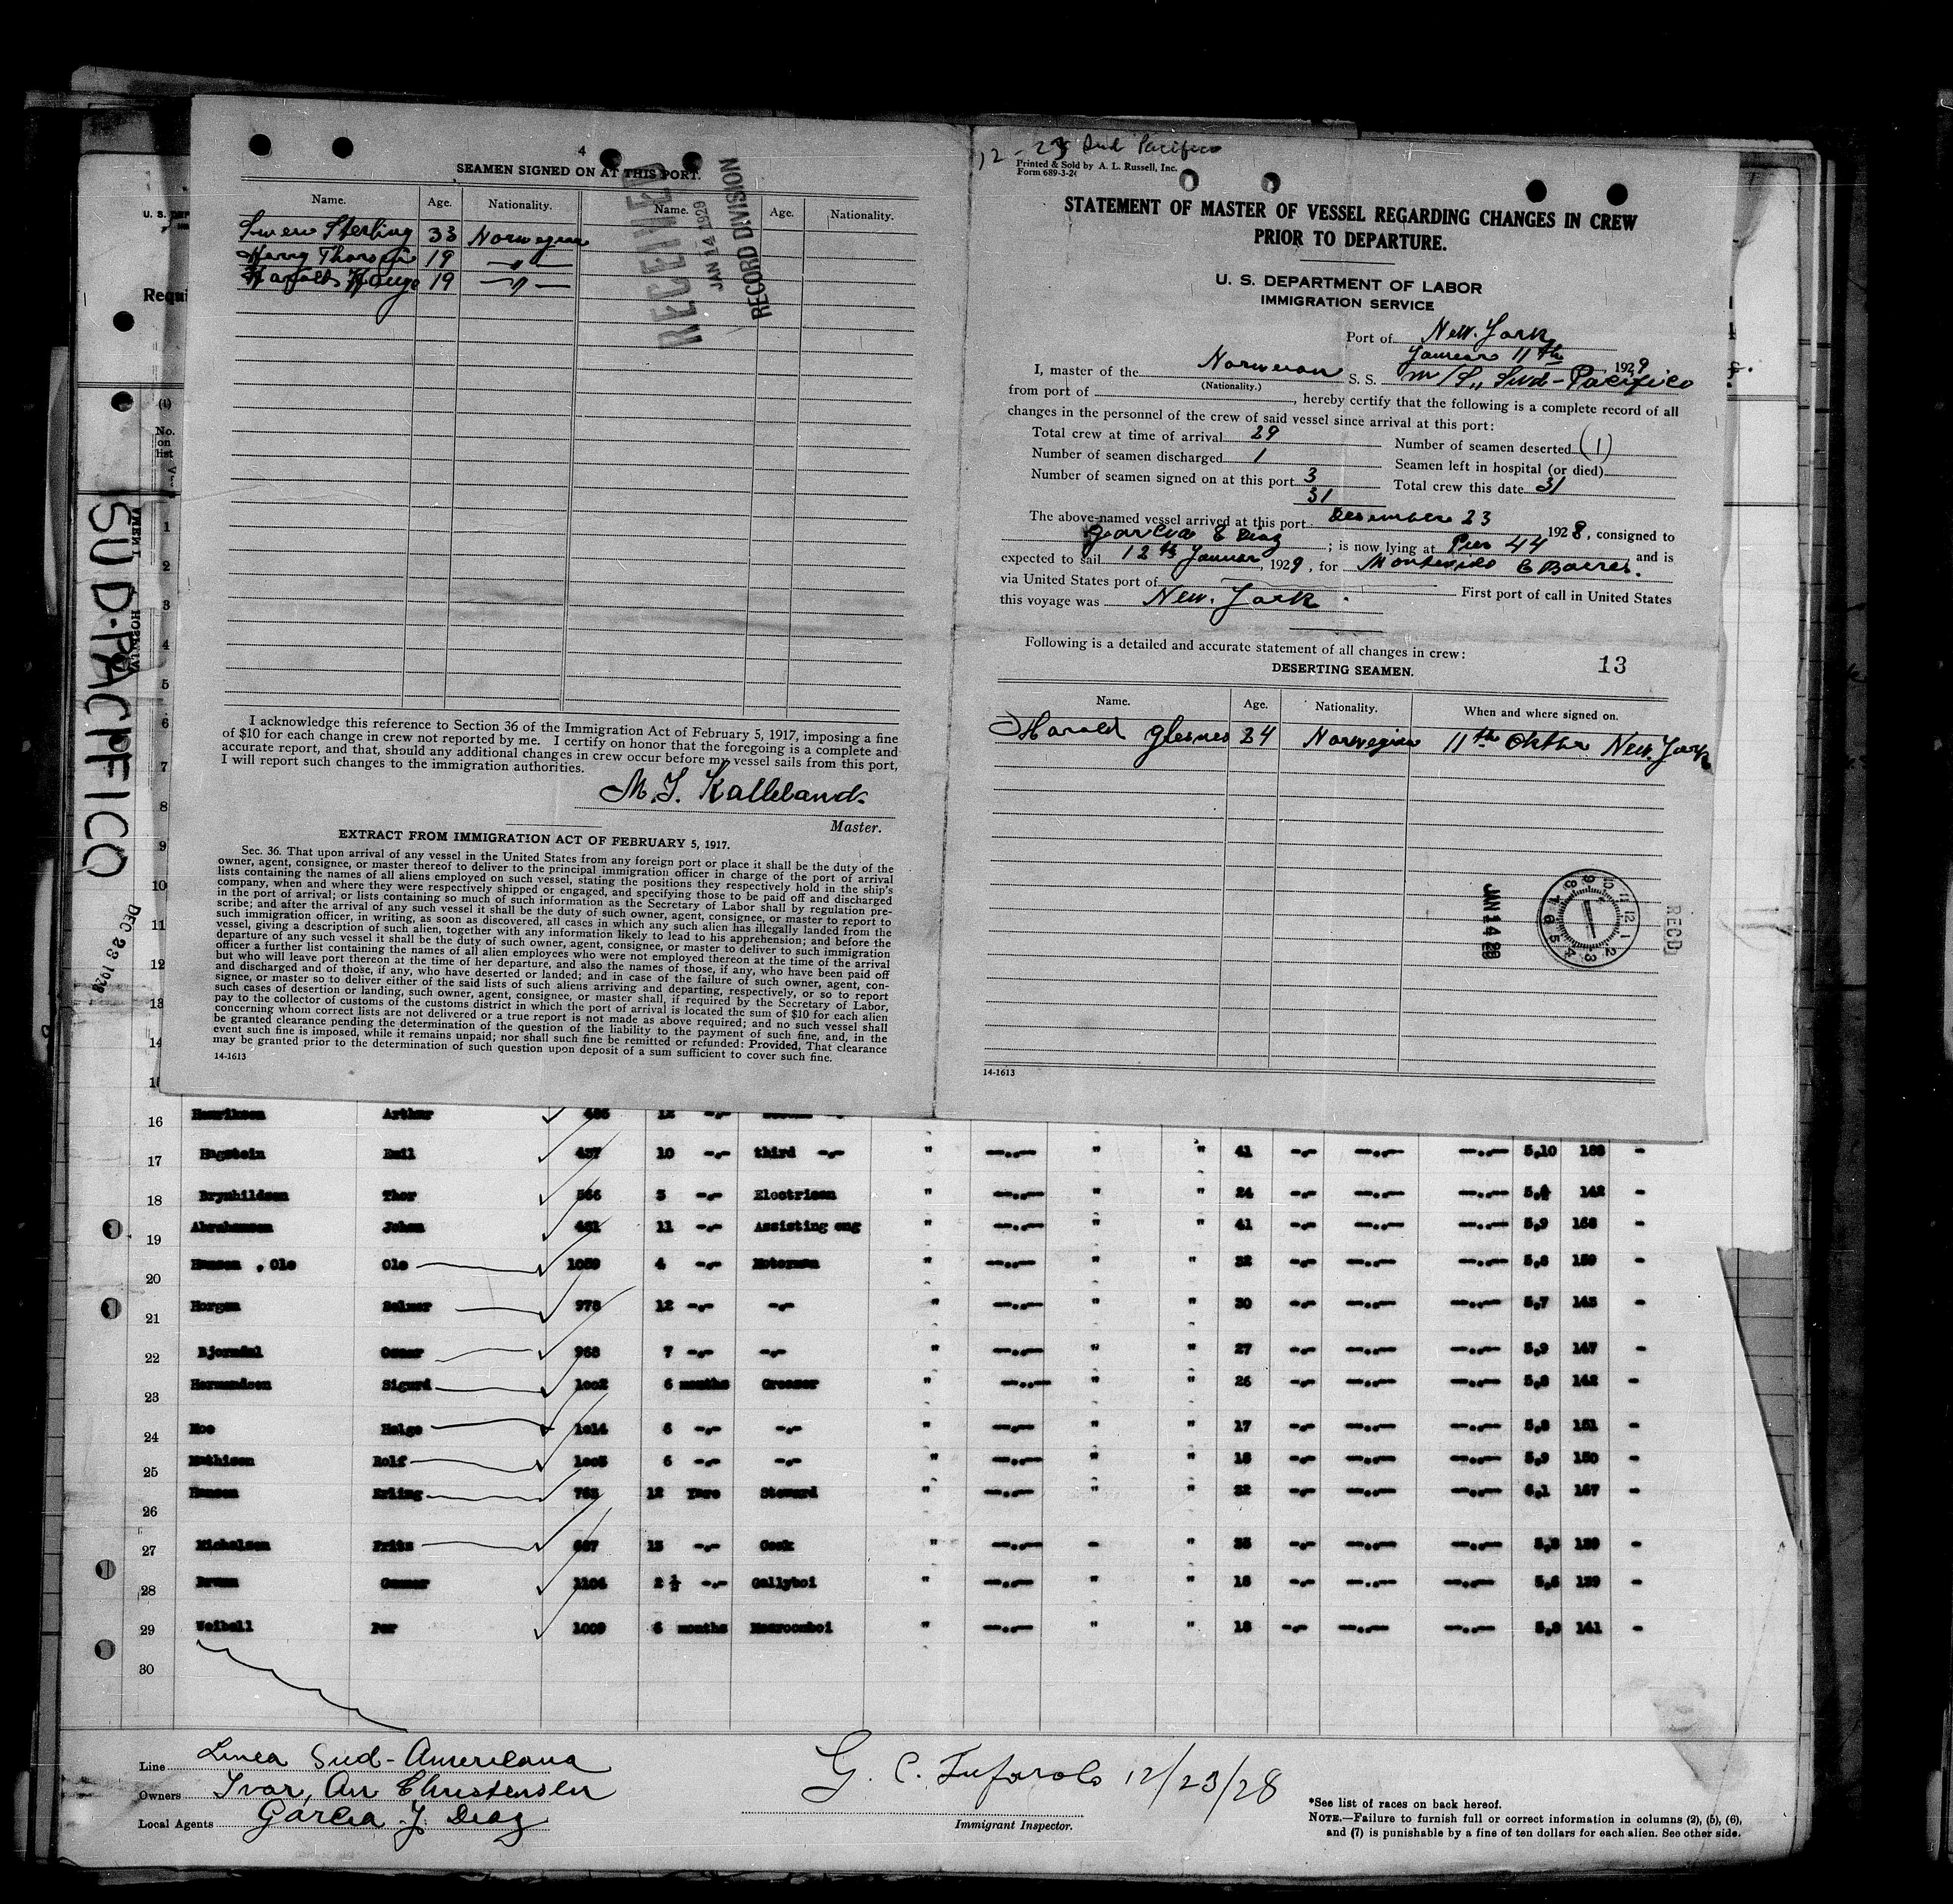 4
SEAMEN SIGNED ON AT THIS PORT.
Name. Age. Nationality. Name. Age. Nationality.
Sterling 33 Norwegian
Harry 19 —〃—
19 —〃—
RECEIVED
JAN 14 1929
RECORD DIVISION
I acknowledge this reference to Section 36 of the Immigration Act of February 5, 1917, imposing a fine
of $10 for each change in crew not reported by me. I certify on honor that the foregoing is a complete and
accurate report, and that, should any additional changes in crew occur before my vessel sails from this port,
I will report such changes to the immigration authorities.
M. J. Kalleland.
Master.
EXTRACT FROM IMMIGRATION ACT OF FEBRUARY 5, 1917.
Sec. 36. That upon arrival of any vessel in the United States from any foreign port or place it shall be the duty of the
owner, agent, consignee, or master thereof to deliver to the principal immigration officer in charge of the port of arrival
lists containing the names of all aliens employed on such vessel, stating the positions they respectively hold in the ship's
company, when and where they were respectively shipped or engaged, and specifying those to be paid off and discharged
in the port of arrival; or lists containing so much of such information as the Secretary of Labor shall by regulation pre-
scribe; and after the arrival of any such vessel it shall be the duty of such owner, agent, consignee, or master to report to
such immigration officer, in writing, as soon as discovered, all cases in which any such alien has illegally landed from the
vessel, giving a description of such alien, together with any information likely to lead to his apprehension; and before the
departure of any such vessel it shall be the duty of such owner, agent, consignee, or master to deliver to such immigration
officer a further list containing the names of all alien employees who were not employed thereon at the time of the arrival
but who will leave port thereon at the time of her departure, and also the names of those, if any, who have been paid off
and discharged and of those, if any, who have deserted or landed; and in case of the failure of such owner, agent, con-
signee, or master so to deliver either of the said lists of such aliens arriving and departing, respectively, or so to report
such cases of desertion or landing, such owner, agent, consignee, or master shall, if required by the Secretary of Labor,
pay to the collector of customs of the customs district in which the port of arrival is located the sum of $10 for each alien
concerning whom correct lists are not delivered or a true report is not made as above required; and no such vessel shall
be granted clearance pending the determination of the question of the liability to the payment of such fine, and, in the
event such fine is imposed, while it remains unpaid; nor shall such fine be remitted or refunded: Provided, That clearance
may be granted prior to the determination of such question upon deposit of a sum sufficient to cover such fine.
14-1613
12-23 Sud Pacifico
Printed & Sold by A. L. Russell, Inc.
Form 689-3-2
STATEMENT OF MASTER OF VESSEL REGARDING CHANGES IN CREW
PRIOR TO DEPARTURE.
U. S. DEPARTMENT OF LABOR
IMMIGRATION SERVICE
Port of New. York
11th, 1929
I, master of the S. S. m/S,, Sud-Pacifico
(Nationality.)
from port of , hereby certify that the following is a complete record of all
changes in the personnel of the crew of said vessel since arrival at this port:
Total crew at time of arrival 29 Number of seamen deserted (1)
Number of seamen discharged 1 Seamen left in hospital (or died)
Number of seamen signed on at this port 3 Total crew this date 31
31
The above-named vessel arrived at this port December 23 1928, consigned to
Garcia & Diaz ; is now lying at Pier 44 and is
expected to sail 12th Januar, 1929, for Montevideo & Baires.
via United States port of First port of call in United States
this voyage was New. York.
Following is a detailed and accurate statement of all changes in crew:
DESERTING SEAMEN. 13
Name. Age. Nationality. When and where signed on.
Harald Glesnes 24 Norwegian 11th New. York
JAN 14 29
RECD
SUD-PACIFICO
DEC 23 1928
Requi
(4)
No.
on
list
1
2
3
4
5
6
7
8
9
10
11
12
13
14
16 Henriksen Arthur 12
17 Hagstein Emil 437 10 third 41 5,10 188
18 Brynhildsen Thor 566 3 Electrican 24 142
19 Abrahamsen Johan 461 11 Assisting eng 41 5,9 168
20 Hansen , Ole Ole 1059 4 Motorman 32 5,8 159
21 Horgen Selmer 978 12 30 5,7 145
22 Bjorndal Gunnar 968 7 27 5,9 147
23 Hermandsen Sigurd 1002 6 months Greaser 26 5,8 142
24 Moe Helge 1014 6 17 5,8 151
25 Mathisen Rolf 6 18 5,9 150
26 Hansen Erling 12 Steward 32 6,1 167
27 Michelsen Fritz 13 Cook 35
28 Gunnar 2½ Gallyboi 18 5,6 139
29 Weiball Per 1009 6 months Messroomboi 18 141
30
Line Linea Sud-Americana
Owners Ivar, An Christensen
Local Agents Garcia y Diaz
12/23/28
Immigrant Inspector.
*See list of races on back hereof.
NOTE.—Failure to furnish full or correct information in columns (2), (5), (6),
and (7) is punishable by a fine of ten dollars for each alien. See other side.